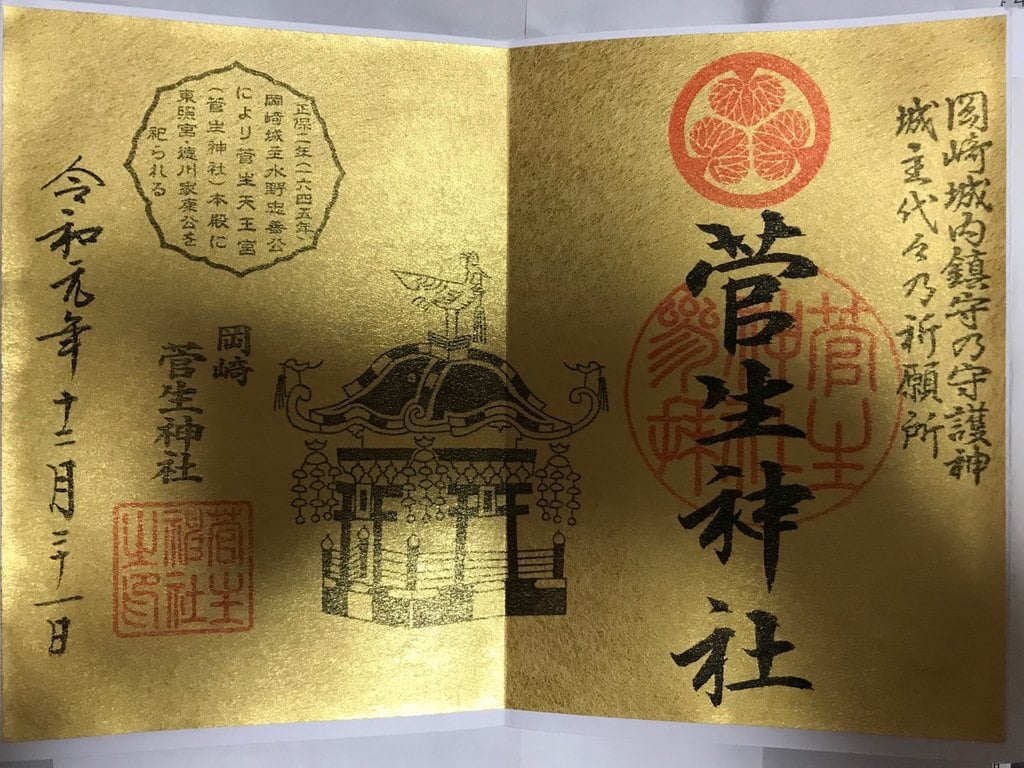 岡崎城内鎮守乃守護神
城主代々乃祈願所
菅生神社
菅生
神社
参拝
正保二年(一六四五年)
岡崎城主水野忠善公
により菅生天王宮
(菅生神社)本殿に
東照宮・徳川家康公を
祀られる
岡崎
菅生神社
菅生
神社
之印
令和元年十二月三十一日